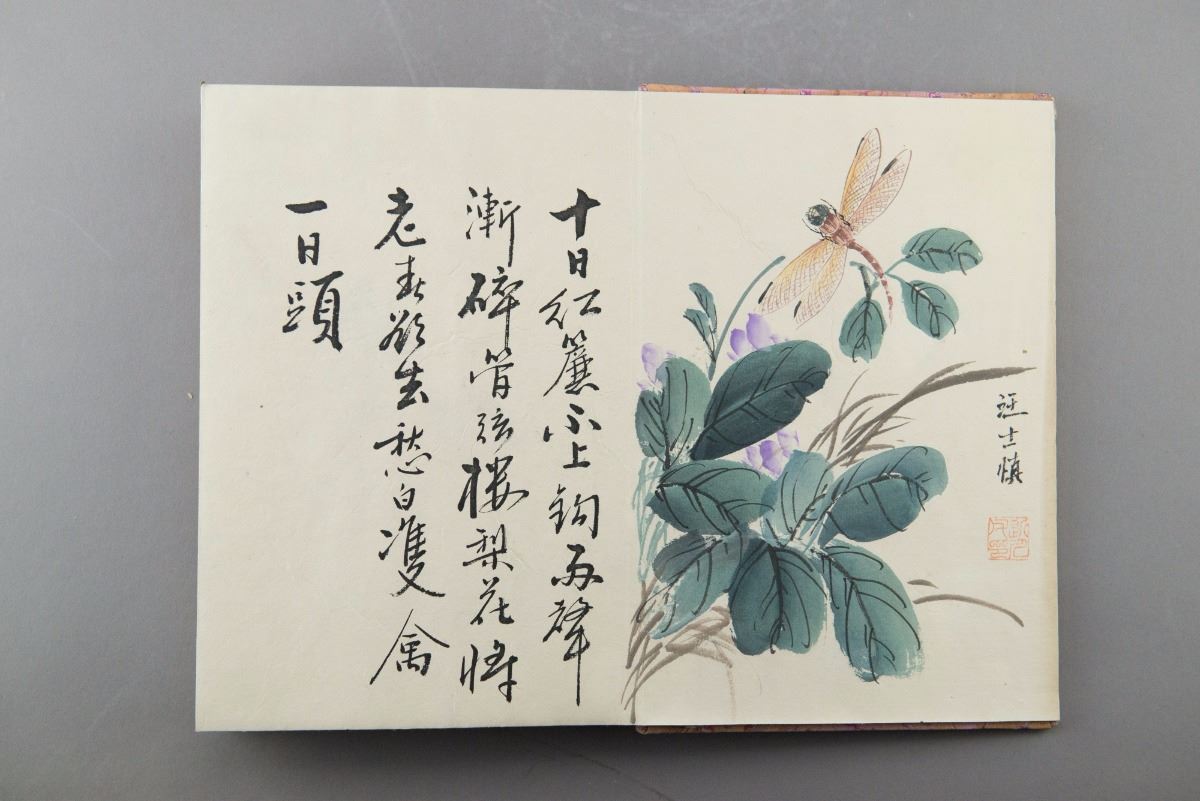 汪士慎
十日紅簾不上鈎雨聲
漸碎管弦樓梨花將
老春欲去愁白雙禽
一日頭